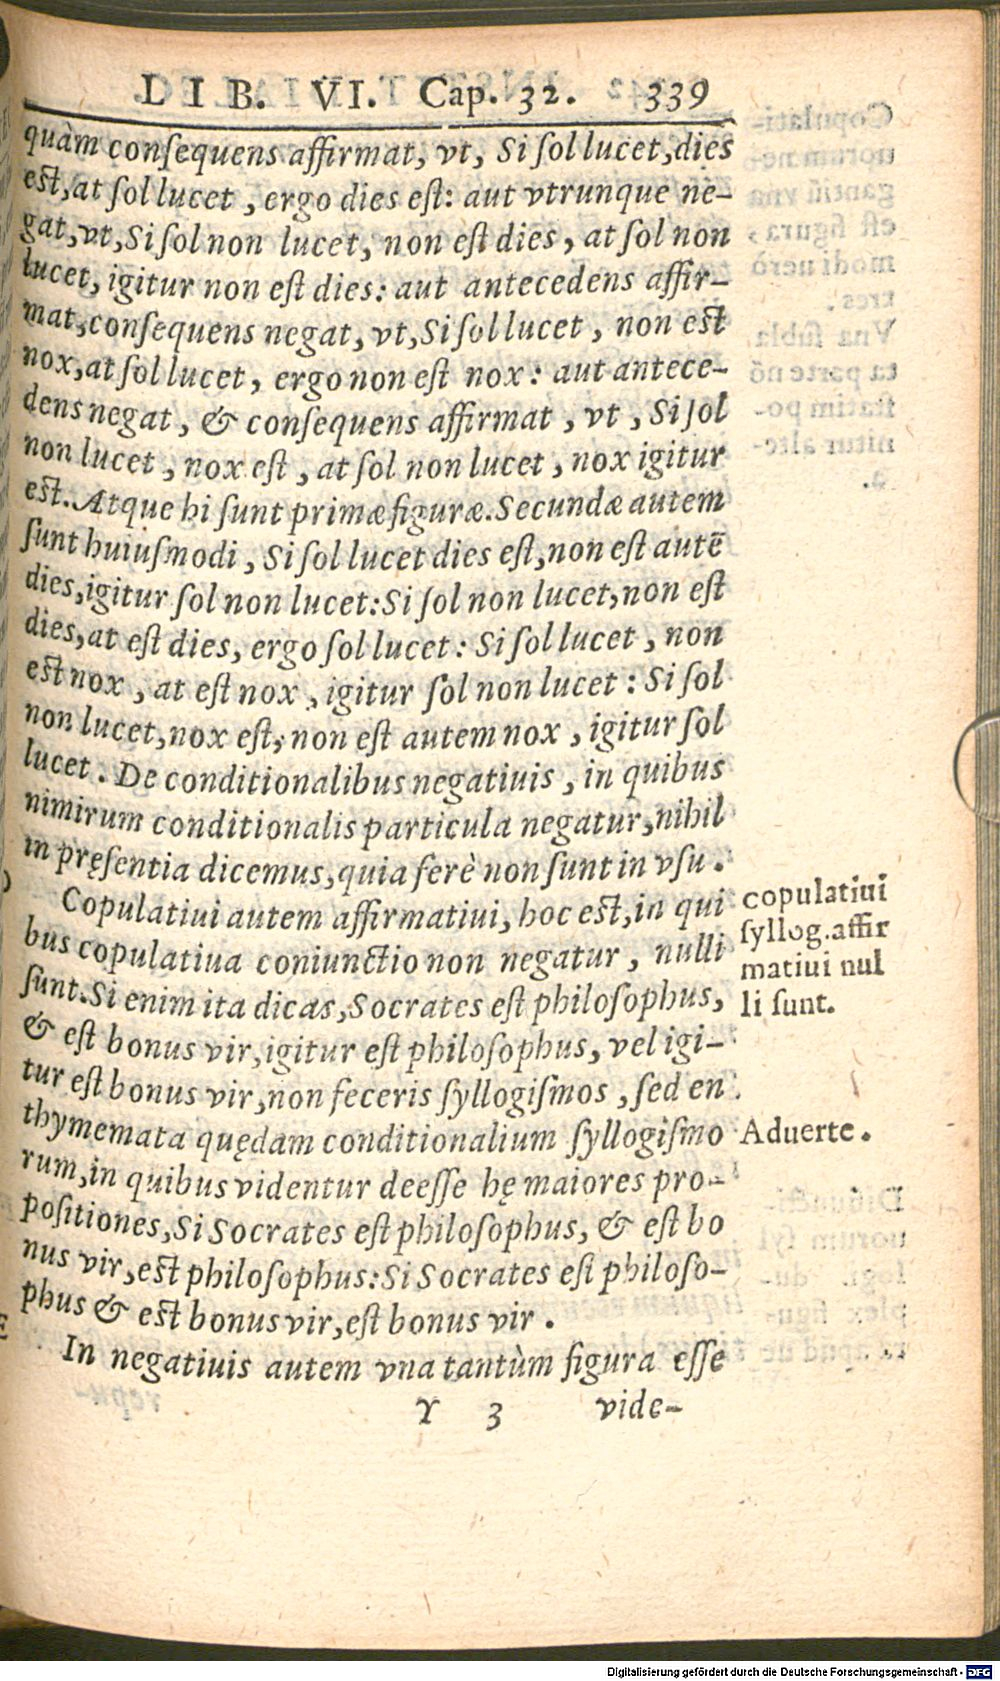 LIB. VI. Cap. 32. 339
quàm conſequens affirmat, vt, Si ſol lucet, dies
eſt, at ſol lucet, ergo dies eſt: aut vtrunque ne-
gat, vt, Si ſol non lucet, non eſt dies, at ſol non
lucet, igitur non eſt dies: aut antecedens affir-
mat, conſequens negat, vt, Si ſol lucet, non eſt
nox, at ſol lucet, ergo non eſt nox: aut antece-
dens negat, & conſequens affirmat, vt, Si ſol
non lucet, nox eſt, at ſol non lucet, nox igitur
eſt. Atque hi ſunt primæ figuræ. Secundæ autem
ſunt huiuſmodi, Si ſol lucet dies eſt, non eſt autē
dies, igitur ſol non lucet: Si ſol non lucet, non eſt
dies, at eſt dies, ergo ſol lucet: Si ſol lucet, non
eſt nox, at eſt nox, igitur ſol non lucet: Si ſol
non lucet, nox eſt, non eſt autem nox, igitur ſol
lucet. De conditionalibus negatiuis, in quibus
nimirum conditionalis particula negatur, nihil
in pręſentia dicemus, quia ferè non ſunt in vſu.
Copulatiui autem affirmatiui, hoc eſt, in qui
bus copulatiua coniunctio non negatur, nulli
ſunt. Si enim ita dicas, Socrates eſt philoſophus,
& eſt bonus vir, igitur eſt philoſophus, vel igi-
tur eſt bonus vir, non feceris ſyllogiſmos, ſed en
thymemata quędam conditionalium ſyllogiſmo
rum, in quibus videntur deeſſe hę maiores pro-
poſitiones, Si Socrates eſt philoſophus, & eſt bo
nus vir, eſt philoſophus: Si Socrates eſt philoſo-
phus & eſt bonus vir, eſt bonus vir.
In negatiuis autem vna tantùm figura eſſe
Y 3 vide-
copulatiui
ſyllog. affir
matiui nul
li ſunt.
Aduerte.
Digitalisierung gefördert durch die Deutsche Forschungsgemeinschaft - DFG